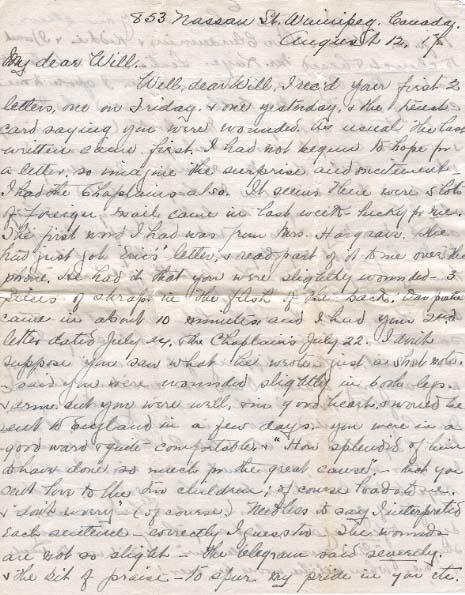 853 Nassau St. Winnipeg, Canada,
August 12, 17.
My dear Will.
Well, dear Will, I rec'd your first 2
letters, one on Friday, & one yesterday, & the
card saying you were wounded. As usual the last
written came first. I had not begun to hope for
a letter, so imagine the surprise and excitement—
I had the Chaplain's also. It seems there were lots
of foreign mail came in last week— lucky for me.
The first word I had was from Mrs. Hargrave. She
had just letter, & read part of it to me over the
phone. He had it that you were slightly wounded— 3
pieces of shrap. in the flesh of the back.
came in about 10 minutes and I had your 2nd
letter dated July 24, & the Chaplain's July 22. I don't
suppose you saw what he wrote just a short note.
— said you were wounded slightly in both legs.
& arm, but you were well, & in good heart, & would be
sent to England in a few days. you were in a
good ward & quite comfortable & "How splendid of him
to have done so much for the great cause",— that you
sent love to the two children; of course loads to me.
& don't worry— (of course.) Needless to say I interpreted
each sentence— correctly I guess too. The wounds
are not so slight— the telegram said severely.
& the bit of praise— to spur my pride in you etc.